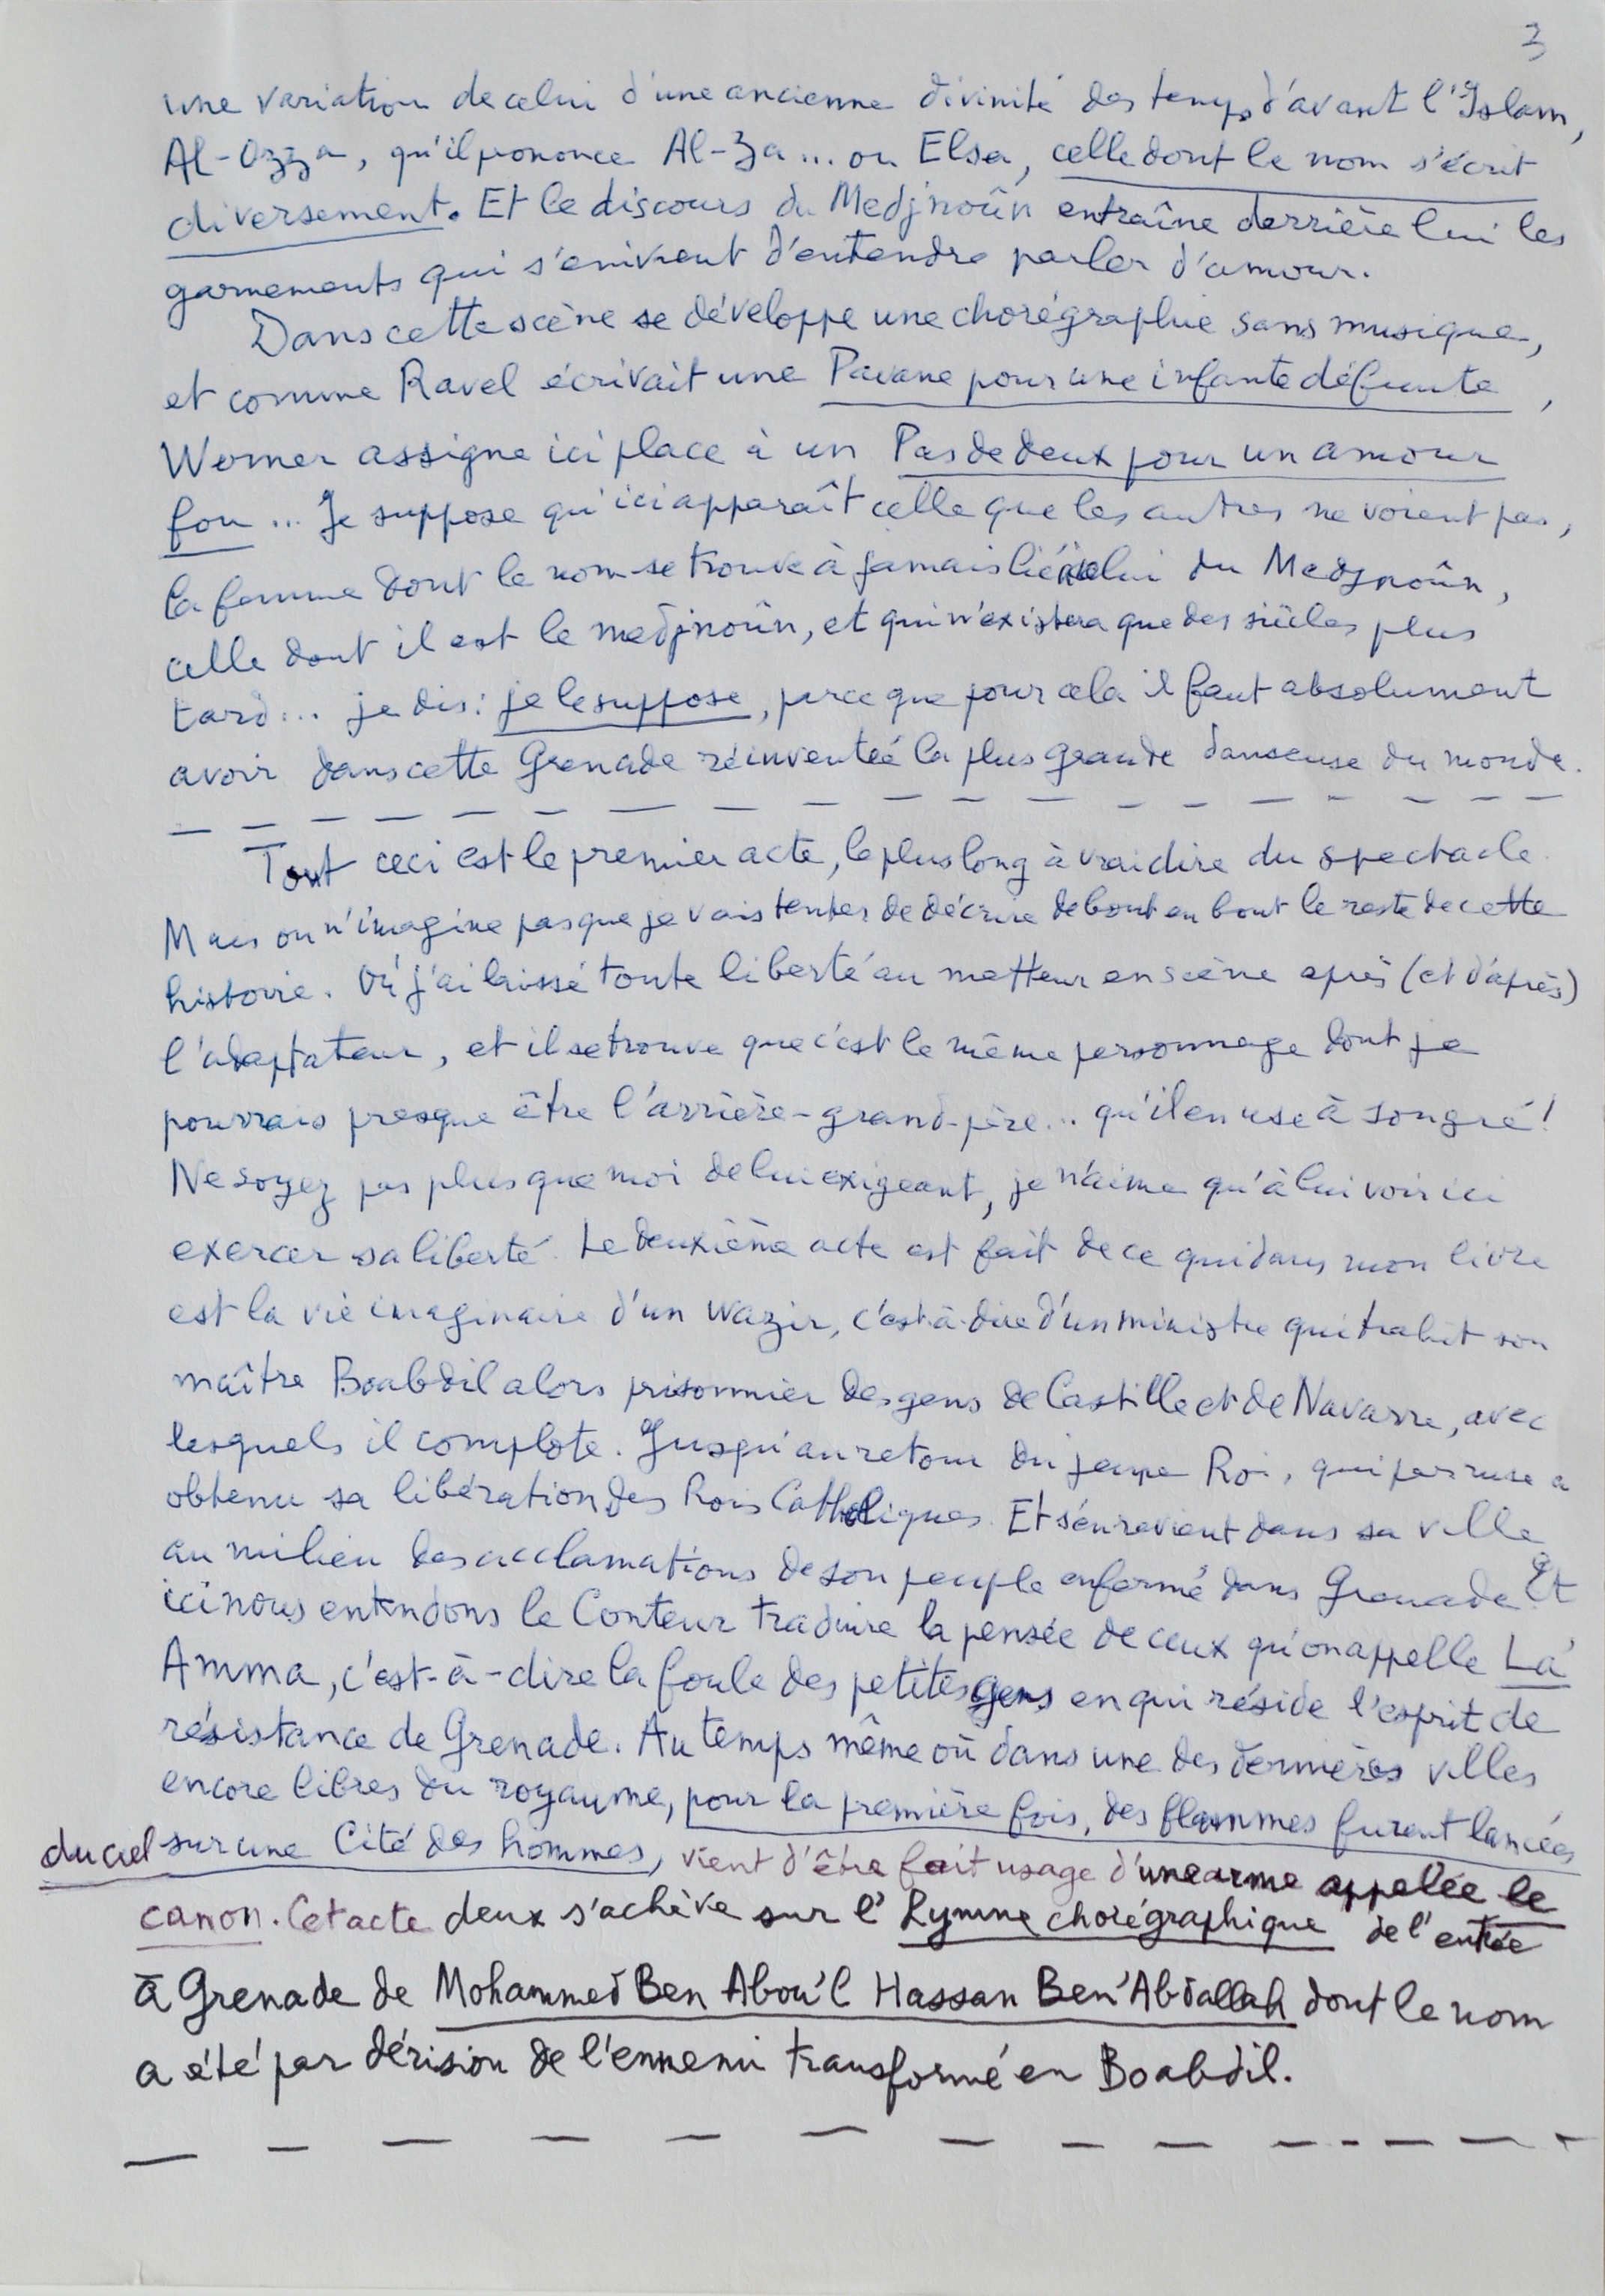 3
une variation de celui d'une ancienne divinité des temps d'avant l'Islam,
Al-Ozza, qu'il prononce Al-Za... ou Elsa, celle dont le nom s'écrit
diversement. Et le discours du Medjnoûn entraîne derrière lui les
garnements qui s'enivrent d'entendre parler d'amour.
Dans cette scène se développe une chorégraphie sans musique,
et comme Ravel écrivait une Pavane pour une infante défunte,
Werner assigne ici place à un Pas de deux pour un amour
fou... Je suppose qu'ici apparaît celle que les autres ne voient pas,
la femme dont le nom se trouve à jamais lié à celui du Medjnoûn,
celle dont il est le medjnoûn, et qui n'existera que des siècles plus
tard... je dis : je le suppose, parce que pour cela il faut absolument
avoir dans cette Grenade réinventée la plus grande danseuse du monde.
Tout ceci est le premier acte, le plus long à vrai dire du spectacle.
Mais on n'imagine pas que je vais tenter de décrire de bout en bout le reste de cette
histoire. Où j'ai laissé toute liberté au metteur en scène après (et d'après)
l'adaptateur, et il se trouve que c'est le même personnage dont je
pourrais presque être l'arrière-grand-père... qu'il en use à son gré !
Ne soyez pas plus que moi de lui exigeant, je n'aime qu'à lui voir ici
exercer sa liberté. Le deuxième acte est fait de ce qui dans mon livre
est la vie imaginaire d'un wazir, c'est-à-dire d'un ministre qui trahit son
maître Boabdil alors prisonnier des gens de Castille et de Navarre, avec
lesquels il complote. Jusqu'au retour du jeune Roi, qui par ruse a
obtenu sa libération des Rois Catholiques. Et s'en revient dans sa ville
au milieu des acclamations de son peuple enfermé dans Grenade. Et
ici nous entendons le Conteur traduire la pensée de ceux qu'on appelle La
Amma, c'est-à-dire la foule des petites gens en qui réside l'esprit de
résistance de Grenade. Au temps même où dans une des dernières villes
encore libres du royaume, pour la première fois, des flammes furent lancées
du ciel sur une Cité des hommes, vient d'être fait usage d'une arme appelée le
canon. Cet acte deux s'achève sur l'Hymne chorégraphique de l'entrée
à Grenade de Mohammed Ben Abou'l Hassan Ben'Abdallah dont le nom
a été par dérision de l'ennemi transformé en Boabdil.